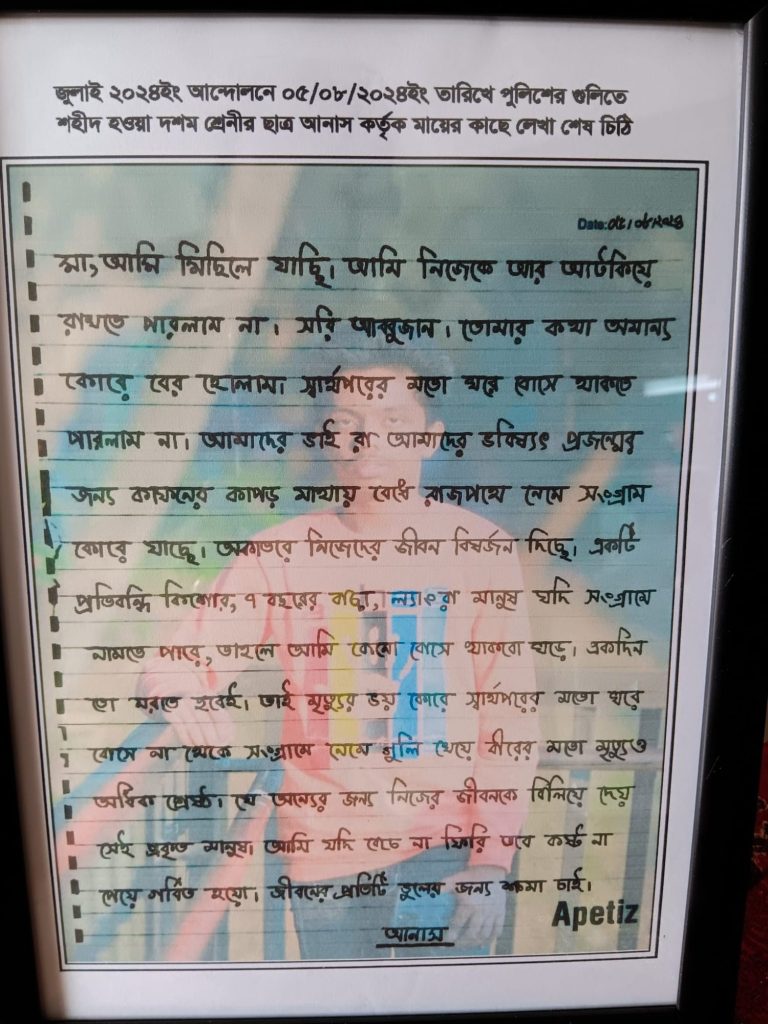 জুলাই ২০২৪ইং আন্দোলনে ০৫/০৮/২০২৪ইং তারিখে পুলিশের গুলিতে
শহীদ হওয়া দশম শ্রেনীর ছাত্র আনাস কর্তৃক মায়ের কাছে লেখা শেষ চিঠি
Date: ০৫/০৮/২০২৪
মা, আমি মিছিলে যাচ্ছি। আমি নিজেকে আর আটকিয়ে
রাখতে পারলাম না। সরি আব্বুজান। তোমার কথা অমান্য
কোরে বের হোলাম। স্বার্থপরের মতো ঘরে বোসে থাকতে
পারলাম না। আমাদের ভাই রা আমাদের ভবিষ্যৎ প্রজন্মের
জন্য কাফনের কাপড় মাথায় বেধে রাজপথে নেমে সংগ্রাম
কোরে যাচ্ছে। অকাতরে নিজেদের জীবন বিষর্জন দিচ্ছে। একটি
প্রতিবন্ধি কিশোর, ৭ বছরের বাচ্চা, ল্যাংরা মানুষ যদি সংগ্রামে
নামতে পারে, তাহলে আমি কেনো বোসে থাকবো ঘড়ে। একদিন
তো মরতে হবেই। তাই মৃত্যুর ভয় কোরে স্বার্থপরের মতো ঘরে
বোসে না থেকে সংগ্রামে নেমে গুলি খেয়ে বীরের মতো মৃত্যুও
অধিক শ্রেষ্ঠ। যে অন্যের জন্য নিজের জীবনকে বিলিয়ে দেয়
সেই প্রকৃত মানুষ। আমি যদি বেচে না ফিরি তবে কষ্ট না
পেয়ে গর্বিত হয়ো। জীবনের প্রতিটি ভুলের জন্য ক্ষমা চাই।
Apetiz
আনাস